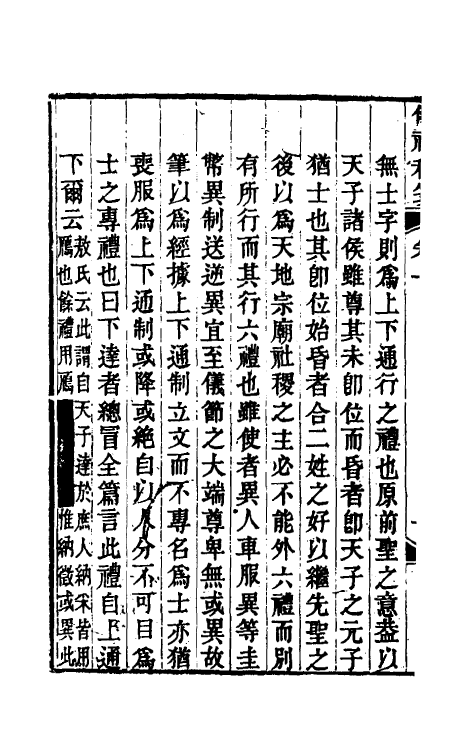 無士字則為上下通行之禮也原前聖之意葢以
天子諸侯雖尊其未卽位而昏者卽天子之元子
猶士也其卽位始昏者合二姓之好以繼先聖之
後以為天地宗廟社稷之主必不能外六禮而別
有所行而其行六禮也雖使者異人車服異等圭
幣異制送逆異宜至儀節之大端尊卑無或異故
筆以為經據上下通制立文而不專名為士亦猶
喪服為上下通制或降或絕自以人分不可目為
士之專禮也曰下達者總冐全篇言此禮自上通
下爾云
敖氏云此謂自天子達於庶人納采皆用
鴈也餘禮用鴈惟納徵或異此